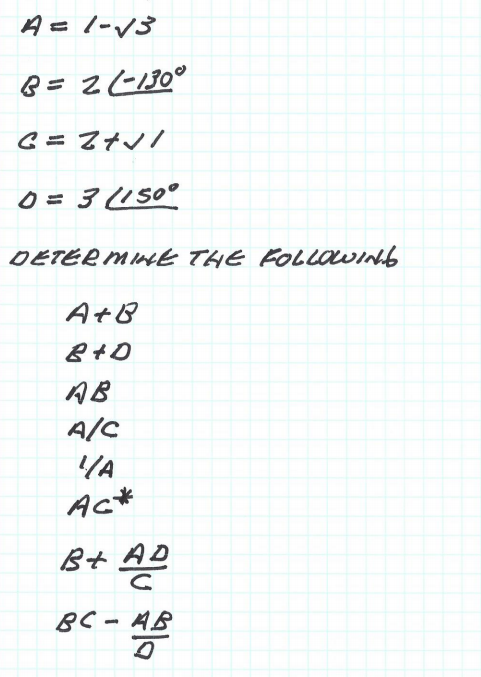 A = 1-j3
B = 2∠-130°
C = 2+j1
D = 3∠150°
DETERMINE THE FOLLOWING
A+B
B+D
AB
A/C
1/A
AC*
B+ AD/C
BC - AB/D